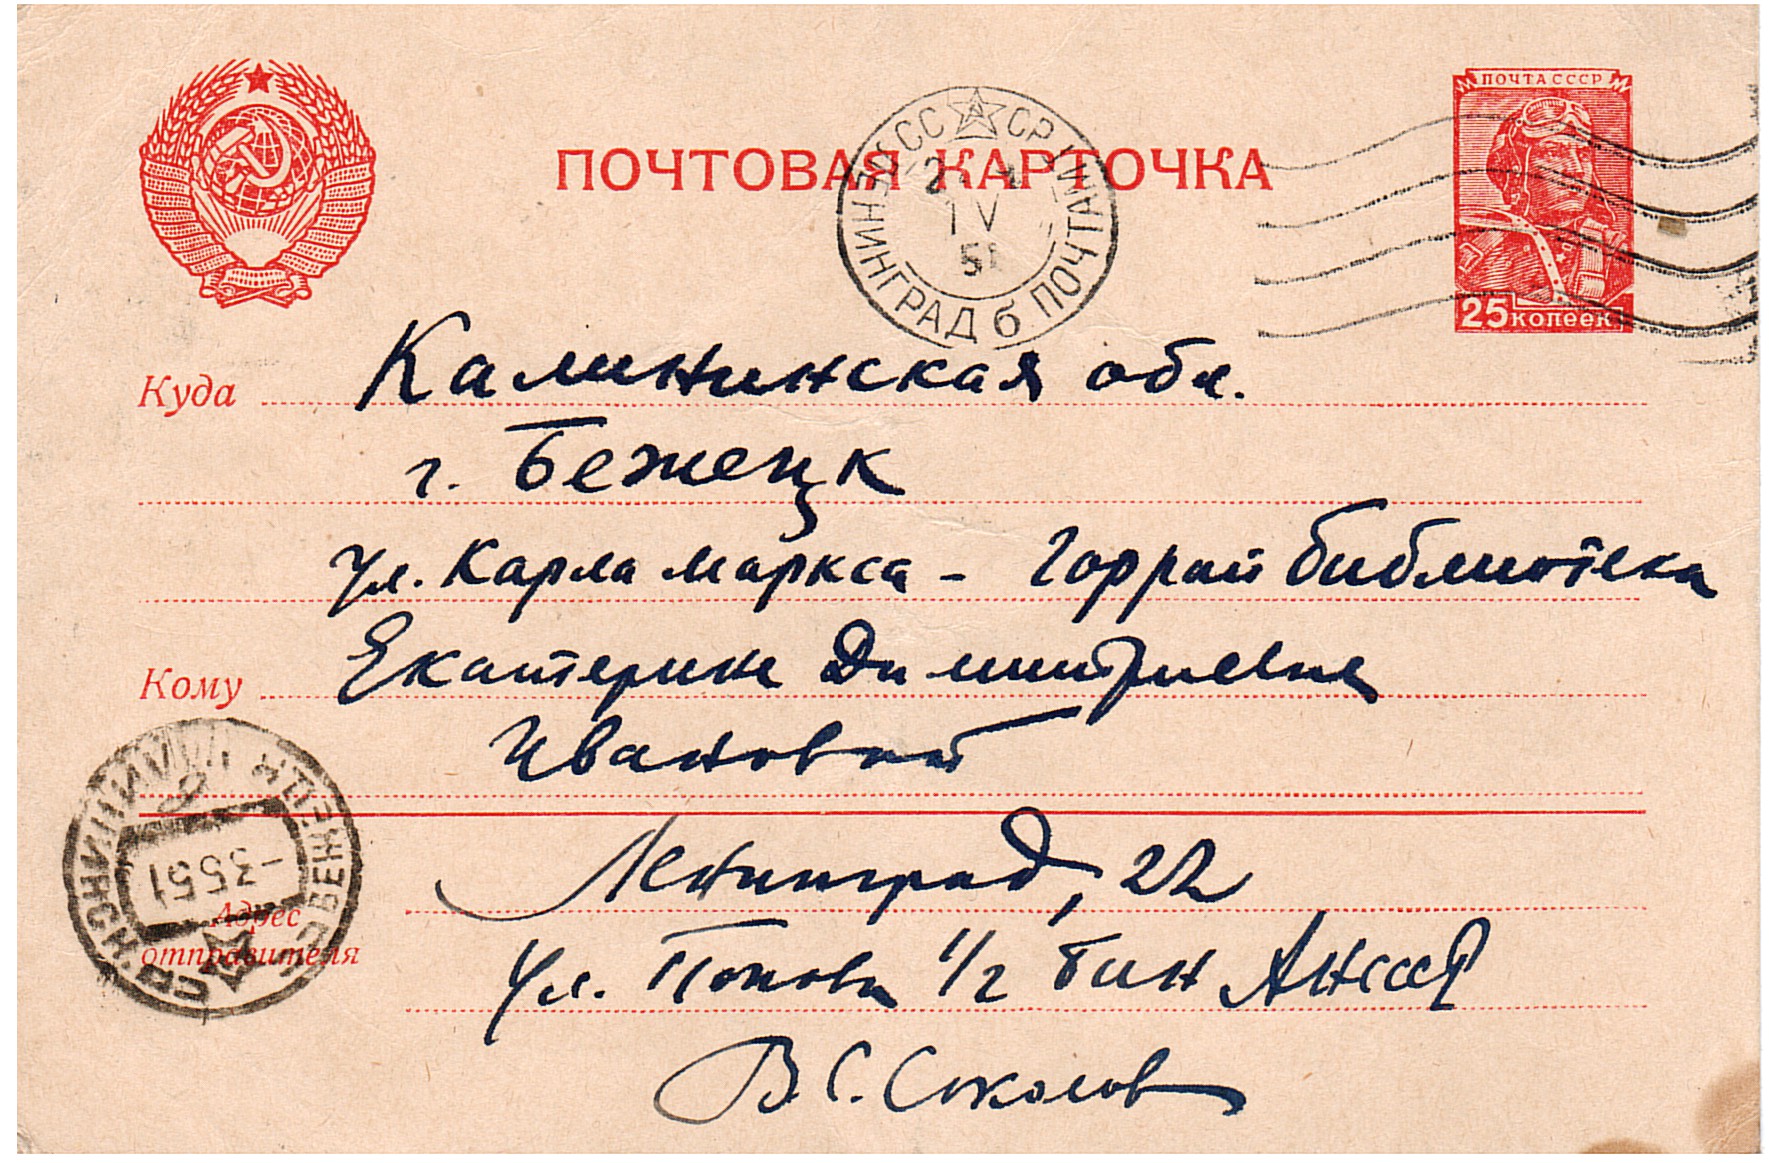 ПОЧТОВАЯ КАРТОЧКА
ПОЧТА СССР
25 КОПЕЕК
СССР
ЛЕНИНГРАД 6 ПОЧТАМТ
IV
Куда Калининская обл.
г. Бежецк
ул. Карла Маркса - Горрай библиотека
Кому Екатерине Димитриевне
Ивановой
БЕЖЕЦК
-3 5 51
Адрес
отправителя
Ленинград, 22
ул. Попова 1/2 бин АНСССР
В. С. Соколов